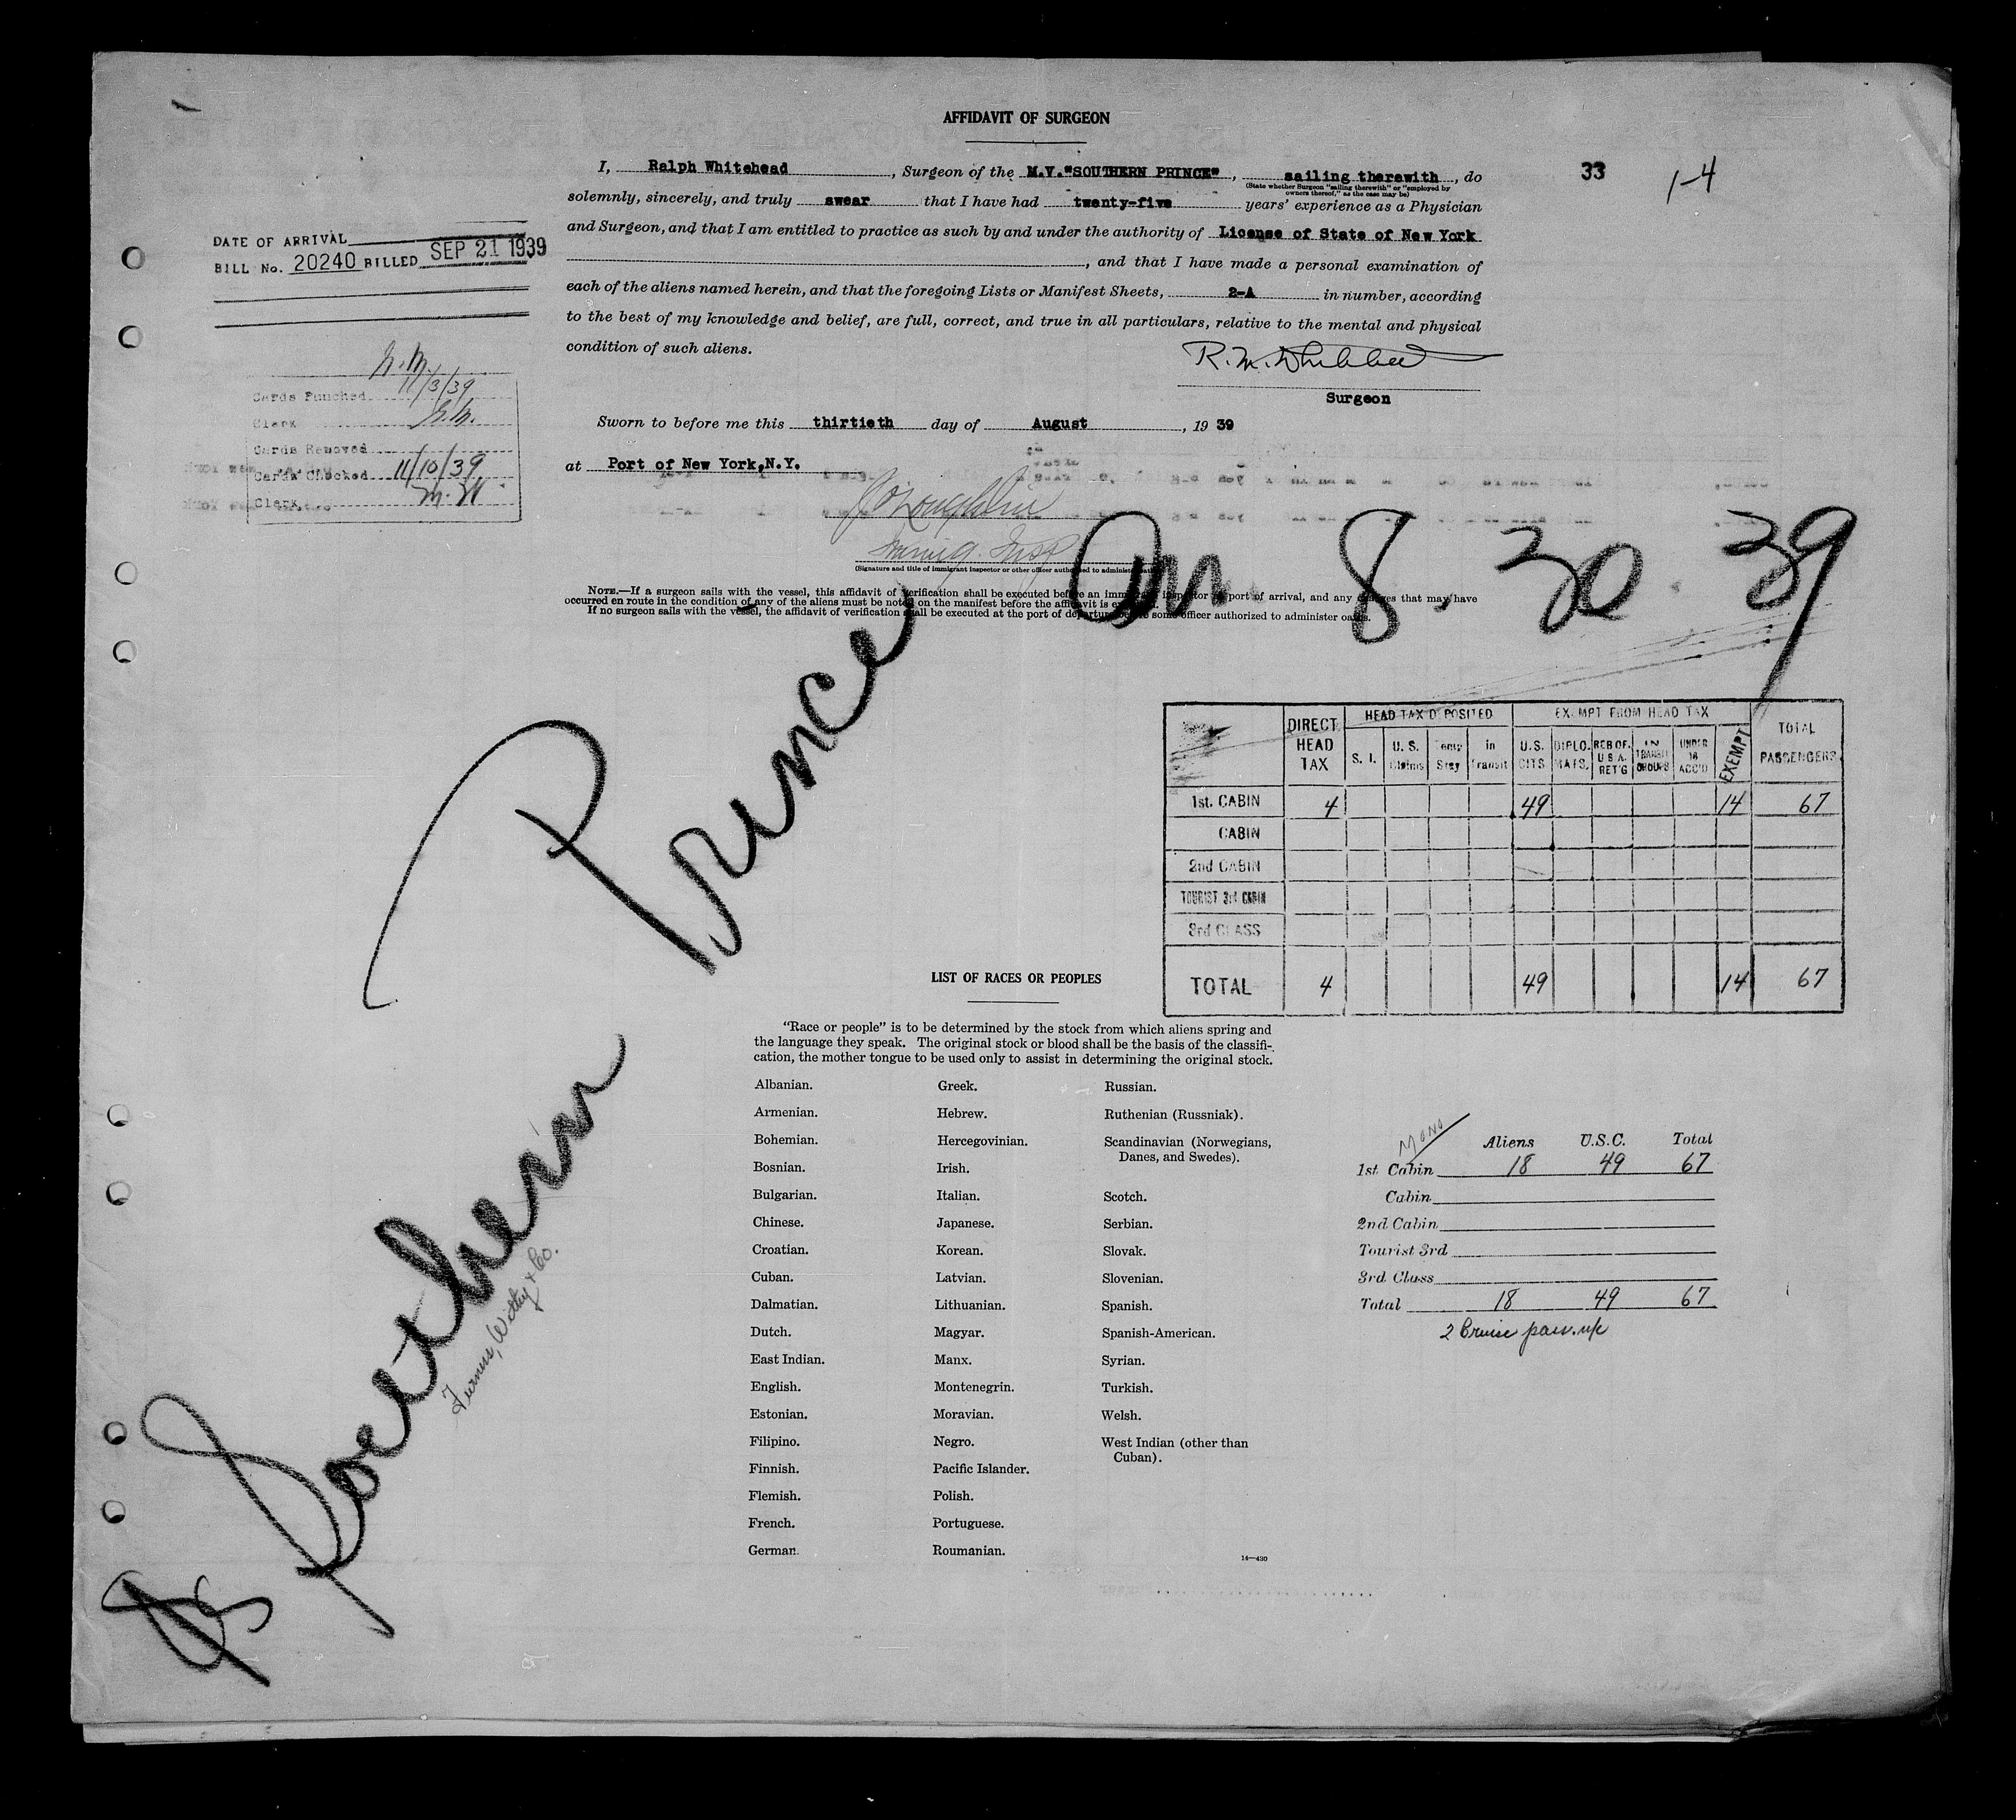 AFFIDAVIT OF SURGEON
I, Ralph Whitehead, Surgeon of the M.V."SOUTHERN PRINCE", sailing therewith, do
(State whether Surgeon "sailing therewith" or "employed by
owners thereof," as the case may be)
solemnly, sincerely, and truly swear that I have had twenty-five years' experience as a Physician
and Surgeon, and that I am entitled to practice as such by and under the authority of License of State of New York
, and that I have made a personal examination of
each of the aliens named herein, and that the foregoing Lists or Manifest Sheets, 2-A in number, according
to the best of my knowledge and belief, are full, correct, and true in all particulars, relative to the mental and physical
condition of such aliens.
33
1-4
DATE OF ARRIVAL
BILL No. 20240 BILLED SEP 21 1939
Cards Punched 11/3/39
Clerk
Cards Removed
Cards Checked 11/10/39
Clerk
Surgeon
Sworn to before me this thirtieth day of August, 19 39
at Port of New York, N.Y.
(Signature and title of immigrant inspector or other officer authorized to administer
8. 30. 39
NOTE.—If a surgeon sails with the vessel, this affidavit of verification shall be executed before an immigrant inspector port of arrival, and any changes that may have
occurred en route in the condition of any of the aliens must be noted on the manifest before the affidavit is
If no surgeon sails with the vessel, the affidavit of verification shall be executed at the port of departure before some officer authorized to administer oaths.
SS Southern Prince
Furness, Withy & Co.
DIRECT HEAD TAX
HEAD TAX DEPOSITED
EXEMPT FROM HEAD TAX
TOTAL PASSENGERS
S. I.
U. S. Claims
Temp Stay
in Transit
U.S. CITS
DIPLO. MATS.
RES OF. U S A. RET'G
IN TRANSIT GROUPS
UNDER 16 ACC'D
EXEMPT
1st. CABIN 4 49 14 67
CABIN
2nd CABIN
TOURIST 3rd CABIN
3rd CLASS
TOTAL 4 49 14 67
LIST OF RACES OR PEOPLES
"Race or people" is to be determined by the stock from which aliens spring and
the language they speak. The original stock or blood shall be the basis of the classifi-
cation, the mother tongue to be used only to assist in determining the original stock.
Albanian.
Armenian.
Bohemian.
Bosnian.
Bulgarian.
Chinese.
Croatian.
Cuban.
Dalmatian.
Dutch.
East Indian.
English.
Estonian.
Filipino.
Finnish.
Flemish.
French.
German.
Greek.
Hebrew.
Hercegovinian.
Irish.
Italian.
Japanese.
Korean.
Latvian.
Lithuanian.
Magyar.
Manx.
Montenegrin.
Moravian.
Negro.
Pacific Islander.
Polish.
Portuguese.
Roumanian.
Russian.
Ruthenian (Russniak).
Scandinavian (Norwegians,
Danes, and Swedes).
Scotch.
Serbian.
Slovak.
Slovenian.
Spanish.
Spanish-American.
Syrian.
Turkish.
Welsh.
West Indian (other than
Cuban).
14—430
Aliens U.S.C. Total
1st. Cabin 18 49 67
Cabin
2nd Cabin
Tourist 3rd
3rd Class
Total 18 49 67
2 Cruise pass.